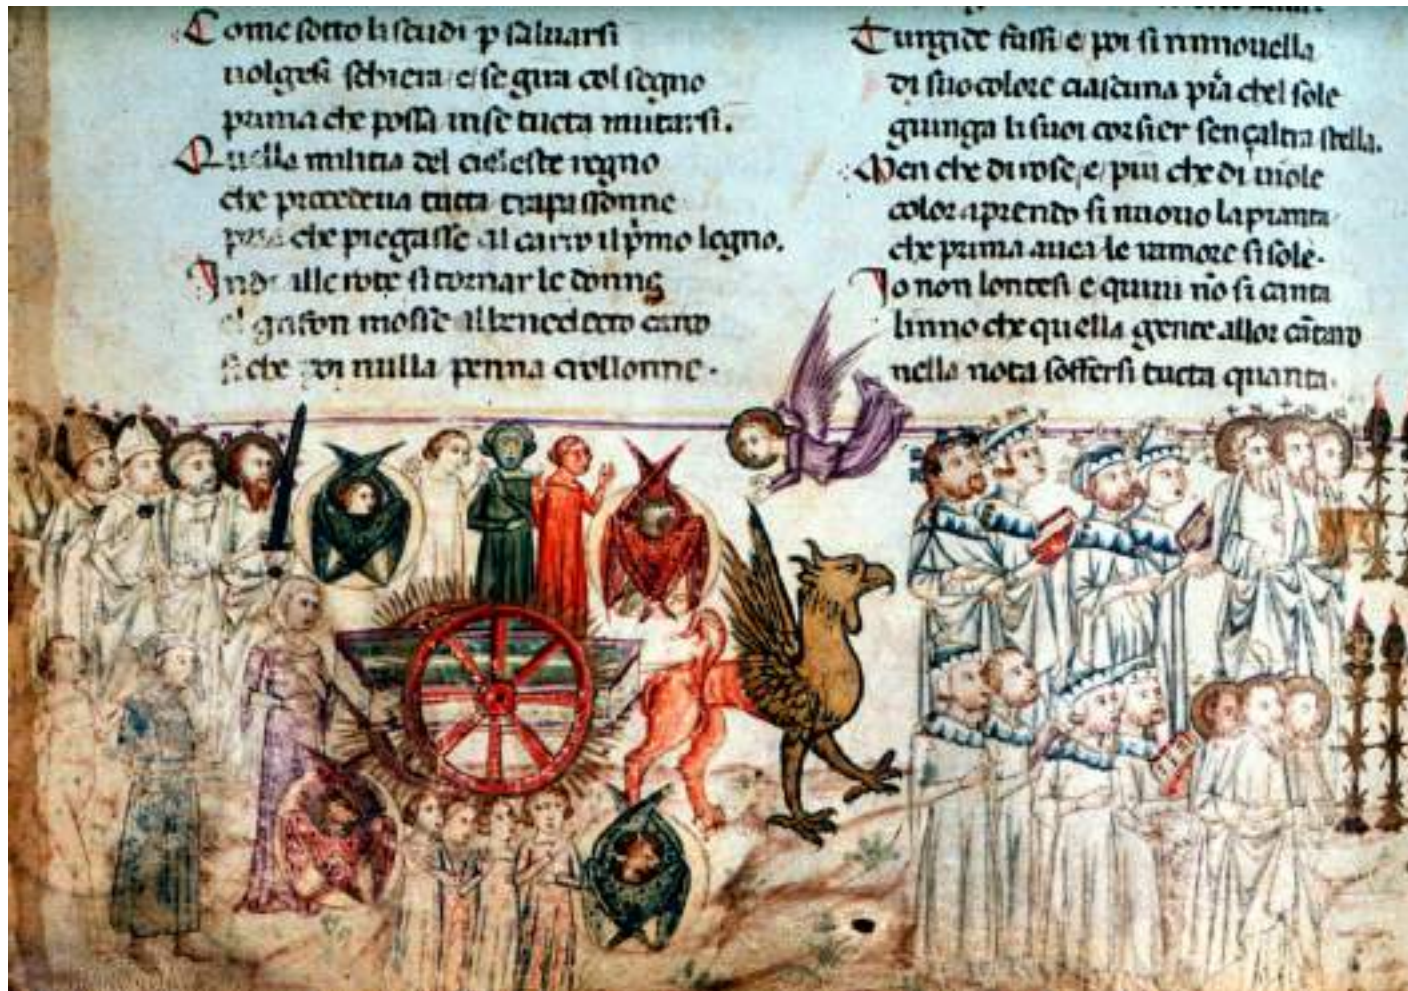 Come sotto li scudi p saluarsi
uolgesi schiera / e se gira col segno
prima che possa in se tucta mutarsi.
Quella militia del cieleste regno
che procedeua tucta trapassonne
pria che piegasse al carro il pmo legno.
Indi alle rote si tornar le donne
el grifon mosse al benedecto carco
si che poi nulla penna crollonne.
Turgide fassi e poi si rinnouella
di suo colore ciascuna pria chel sole
giunga li suoi corsier sençaltra stella.
Men che di rose / e / piu che di uiole
color aprendo si nnouo la pianta
che prima auea le ramore si sole.
Io non lontesi e quiui no si canta
linno che quella gente allor cantaro
nella nota soffersi tucta quanta.